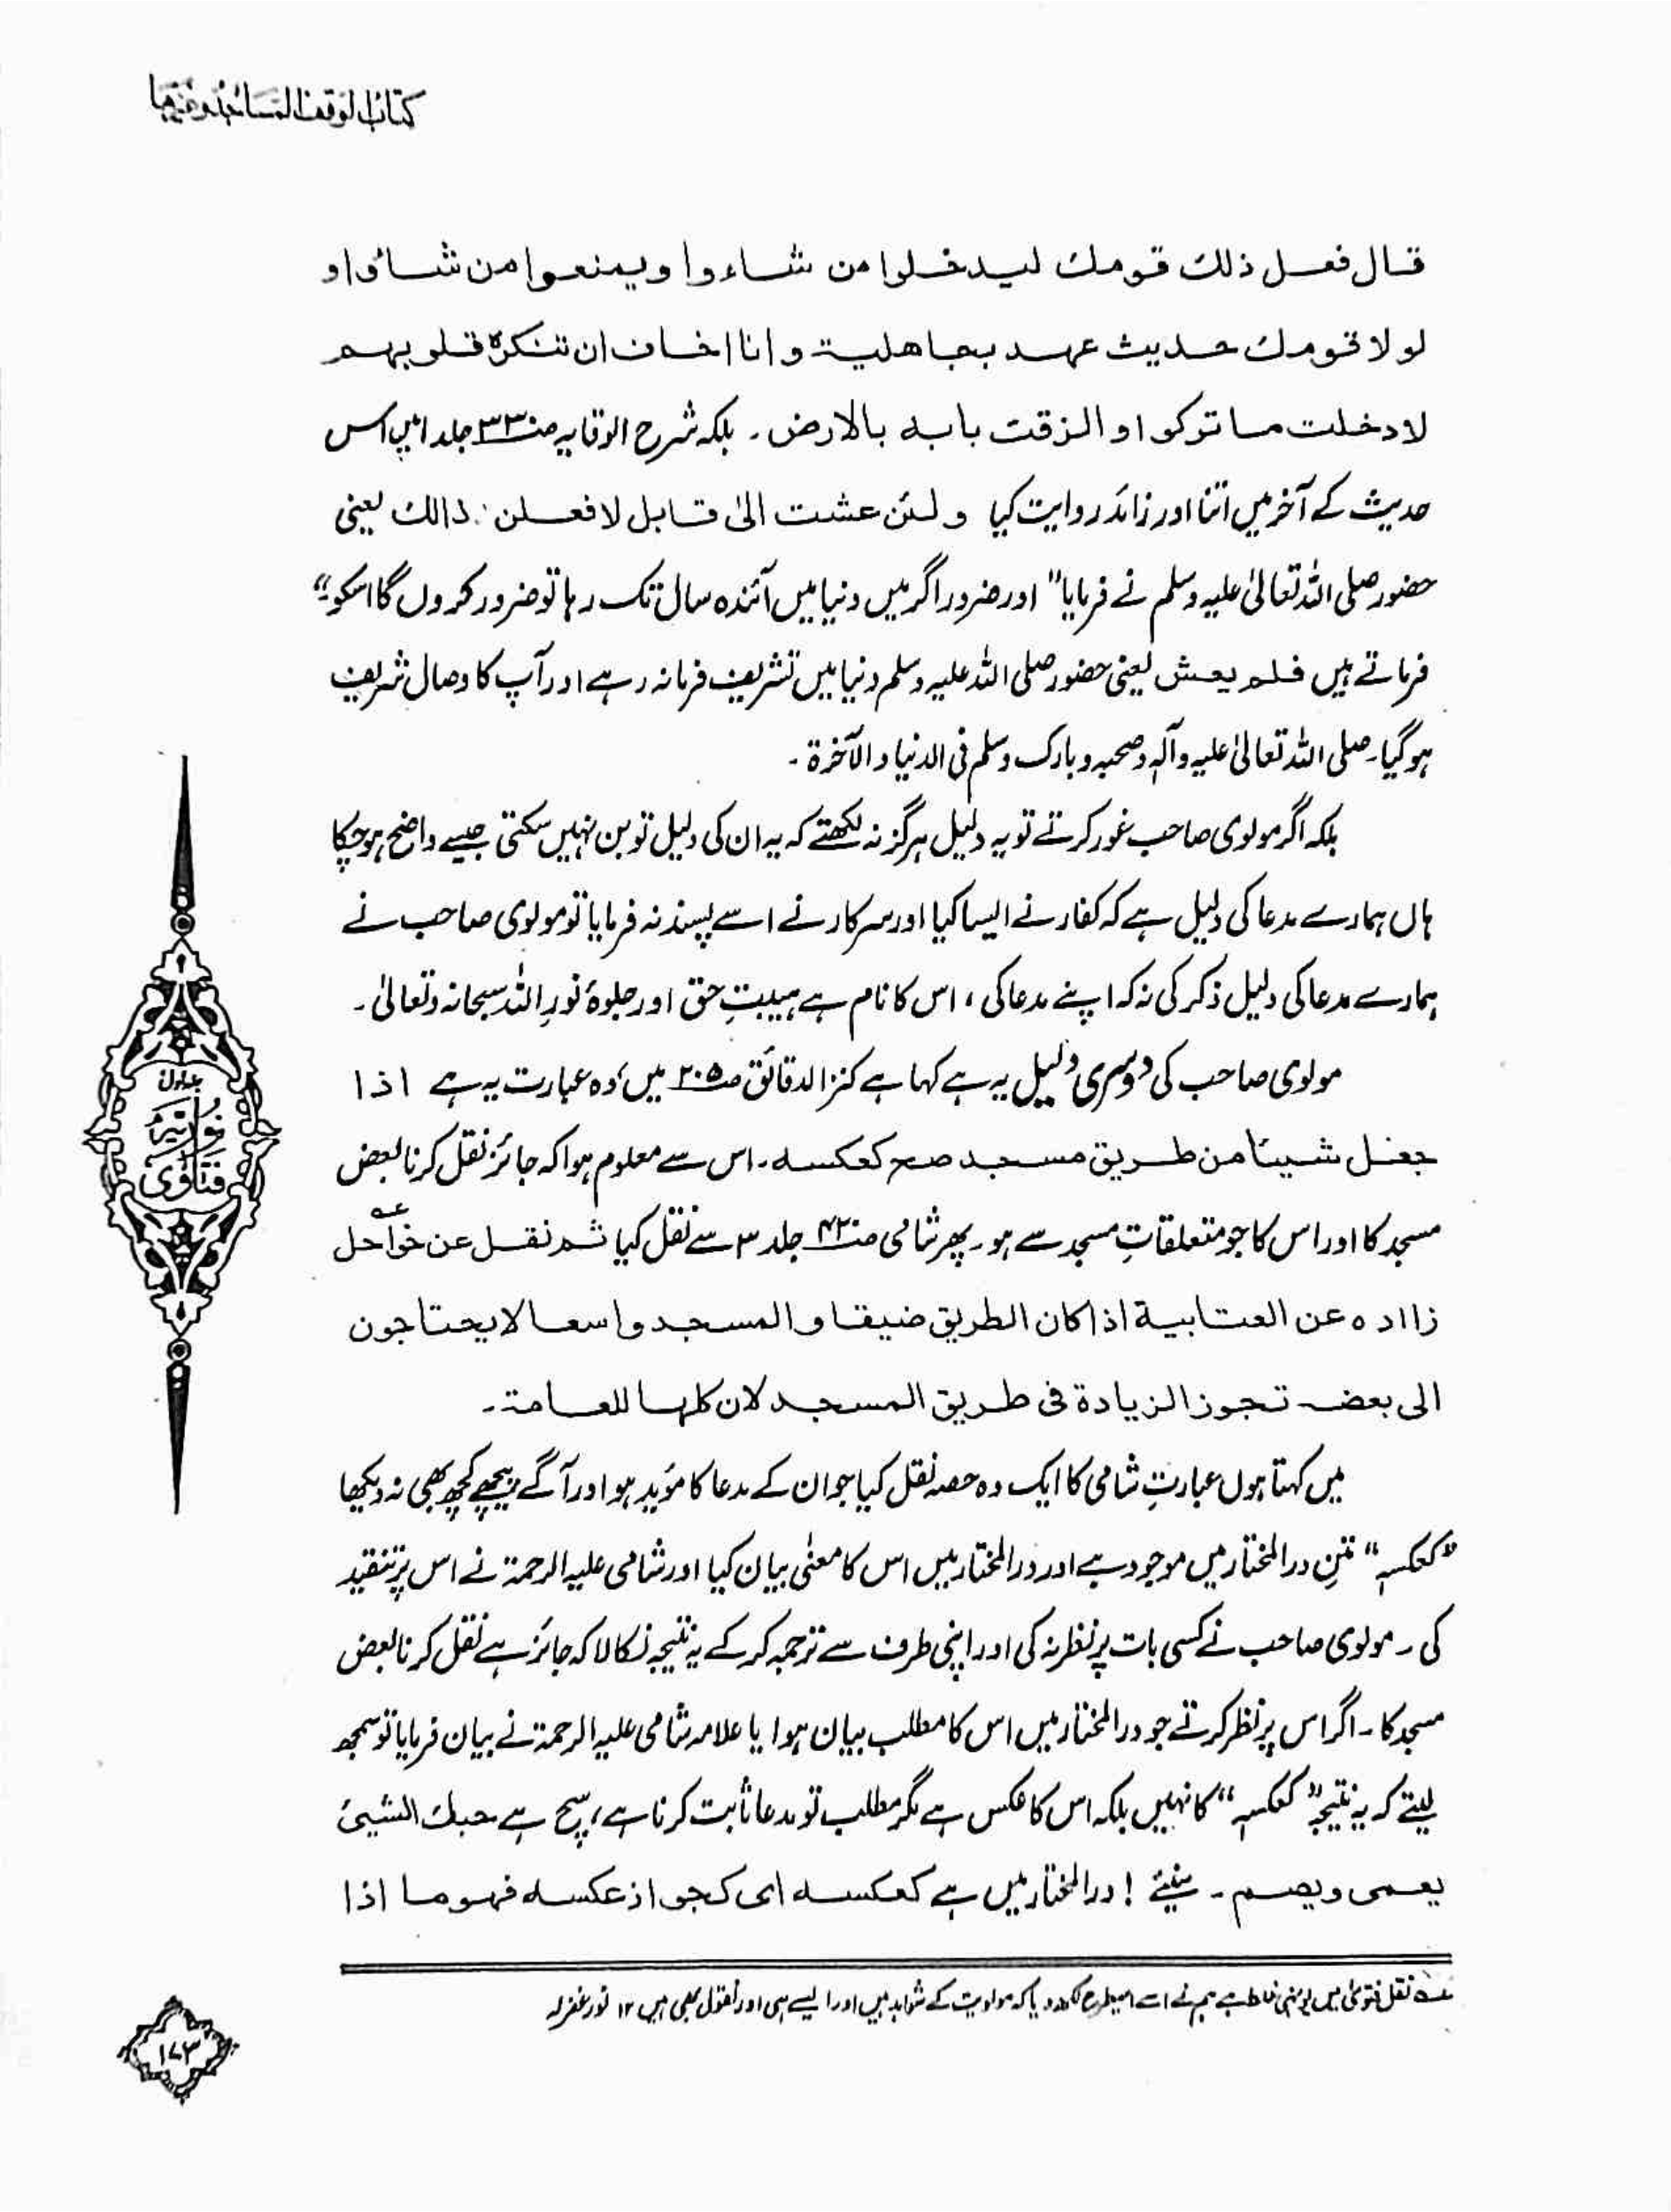 کتاب الوقف المساجد وغیرہا
قال فعل ذلك قومك ليدخلوا من شاءوا ويمنعوا من شاؤا و
لو لا قومك حديث عهد بجاهلية و انا اخاف ان تنكره قلوبهم
لا دخلت ما تركوا و الزقت بابه بالارض ۔ بلکہ شرح الوقایہ صـ۳۳ جلد ا میں اس
حدیث کے آخر میں اتنا اور زائد روایت کیا و لئن عشت الىٰ قابل لافعلن ذالك یعنی
حضور صلی اللہ تعالیٰ علیہ وسلم نے فرمایا” اور ضرور اگر میں دنیا میں آئندہ سال تک رہا تو ضرور کروں گا اسکو ۔“
فرماتے ہیں فلم يعش یعنی حضور صلی اللہ علیہ وسلم دنیا میں تشریف فرما نہ رہے اور آپ کا وصال شریف
ہو گیا۔ صلی اللہ تعالیٰ علیہ وآلہٖ وصحبہ وبارک وسلم فی الدنیا و الآخرۃ ۔
بلکہ اگر مولوی صاحب غور کرتے تو یہ دلیل ہرگز نہ لکھتے کہ یہ ان کی دلیل تو بن نہیں سکتی جیسے واضح ہوچکا
ہاں ہمارے مدعا کی دلیل ہے کہ کفار نے ایسا کیا اور سرکار نے اسے پسند نہ فرمایا تو مولوی صاحب نے
ہمارے مدعا کی دلیل ذکر کی نہ کہ اپنے مدعا کی ، اس کا نام ہے ہیبتِ حق اور جلوۂ نورِ اللہ سبحانہ وتعالیٰ ۔
مولوی صاحب کی دوسری دلیل یہ ہے کہا ہے کنز الدقائق صـ۲۰۵ میں، وہ عبارت یہ ہے اذا
جعل شيئا من طريق مسجد صح كعكسه ۔ اس سے معلوم ہوا کہ جائز نقل کرنا بعض
مسجد کا اور اس کا جو متعلقاتِ مسجد سے ہو ۔ پھر شامی صـ۴۲ جلد ۳ سے نقل کیا ثم نقل عن خواحل عـہ
زااده عن العتابية اذا كان الطريق ضيقا و المسجد واسعا لا يحتاجون
الى بعضه تجوز الزيادة فى طريق المسجد لان كلها للعامة ۔
میں کہتا ہوں عبارتِ شامی کا ایک وہ حصہ نقل کیا جو ان کے مدعا کا مؤید ہو اور آگے پیچھے کچھ بھی نہ دیکھا
”کعکسہ“ متنِ درالمختار میں موجود ہے اور درالمختار میں اس کا معنٰی بیان کیا اور شامی علیہ الرحمۃ نے اس پر تنقید
کی ۔ مولوی صاحب نے کسی بات پر نظر نہ کی اور اپنی طرف سے ترجمہ کر کے یہ نتیجہ نکالا کہ جائز ہے نقل کرنا بعض
مسجد کا ۔ اگر اس پر نظر کرتے جو درالمختار میں اس کا مطلب بیان ہوا یا علامہ شامی علیہ الرحمۃ نے بیان فرمایا تو سمجھ
لیتے کہ یہ نتیجہ ”کعکسہ“ کا نہیں بلکہ اس کا عکس ہے مگر مطلب تو مدعا ثابت کرنا ہے، سچ ہے حبك الشيئ
يعمى ويصم ۔ سنیئے ! درالمختار میں ہے كعكسه اى كجواز عكسه فهو ما اذا
عـہ نقل فتویٰ میں یونہی غلط ہے ہم نے اسے اسیطرح لکھ دیا کہ مولویت کے شواہد ہیں اور ایسے ہی اور نقول بھی ہیں ۱۲ نور غفرلہ
جلد اول
نوریہ
فتاویٰ
۱۷۳